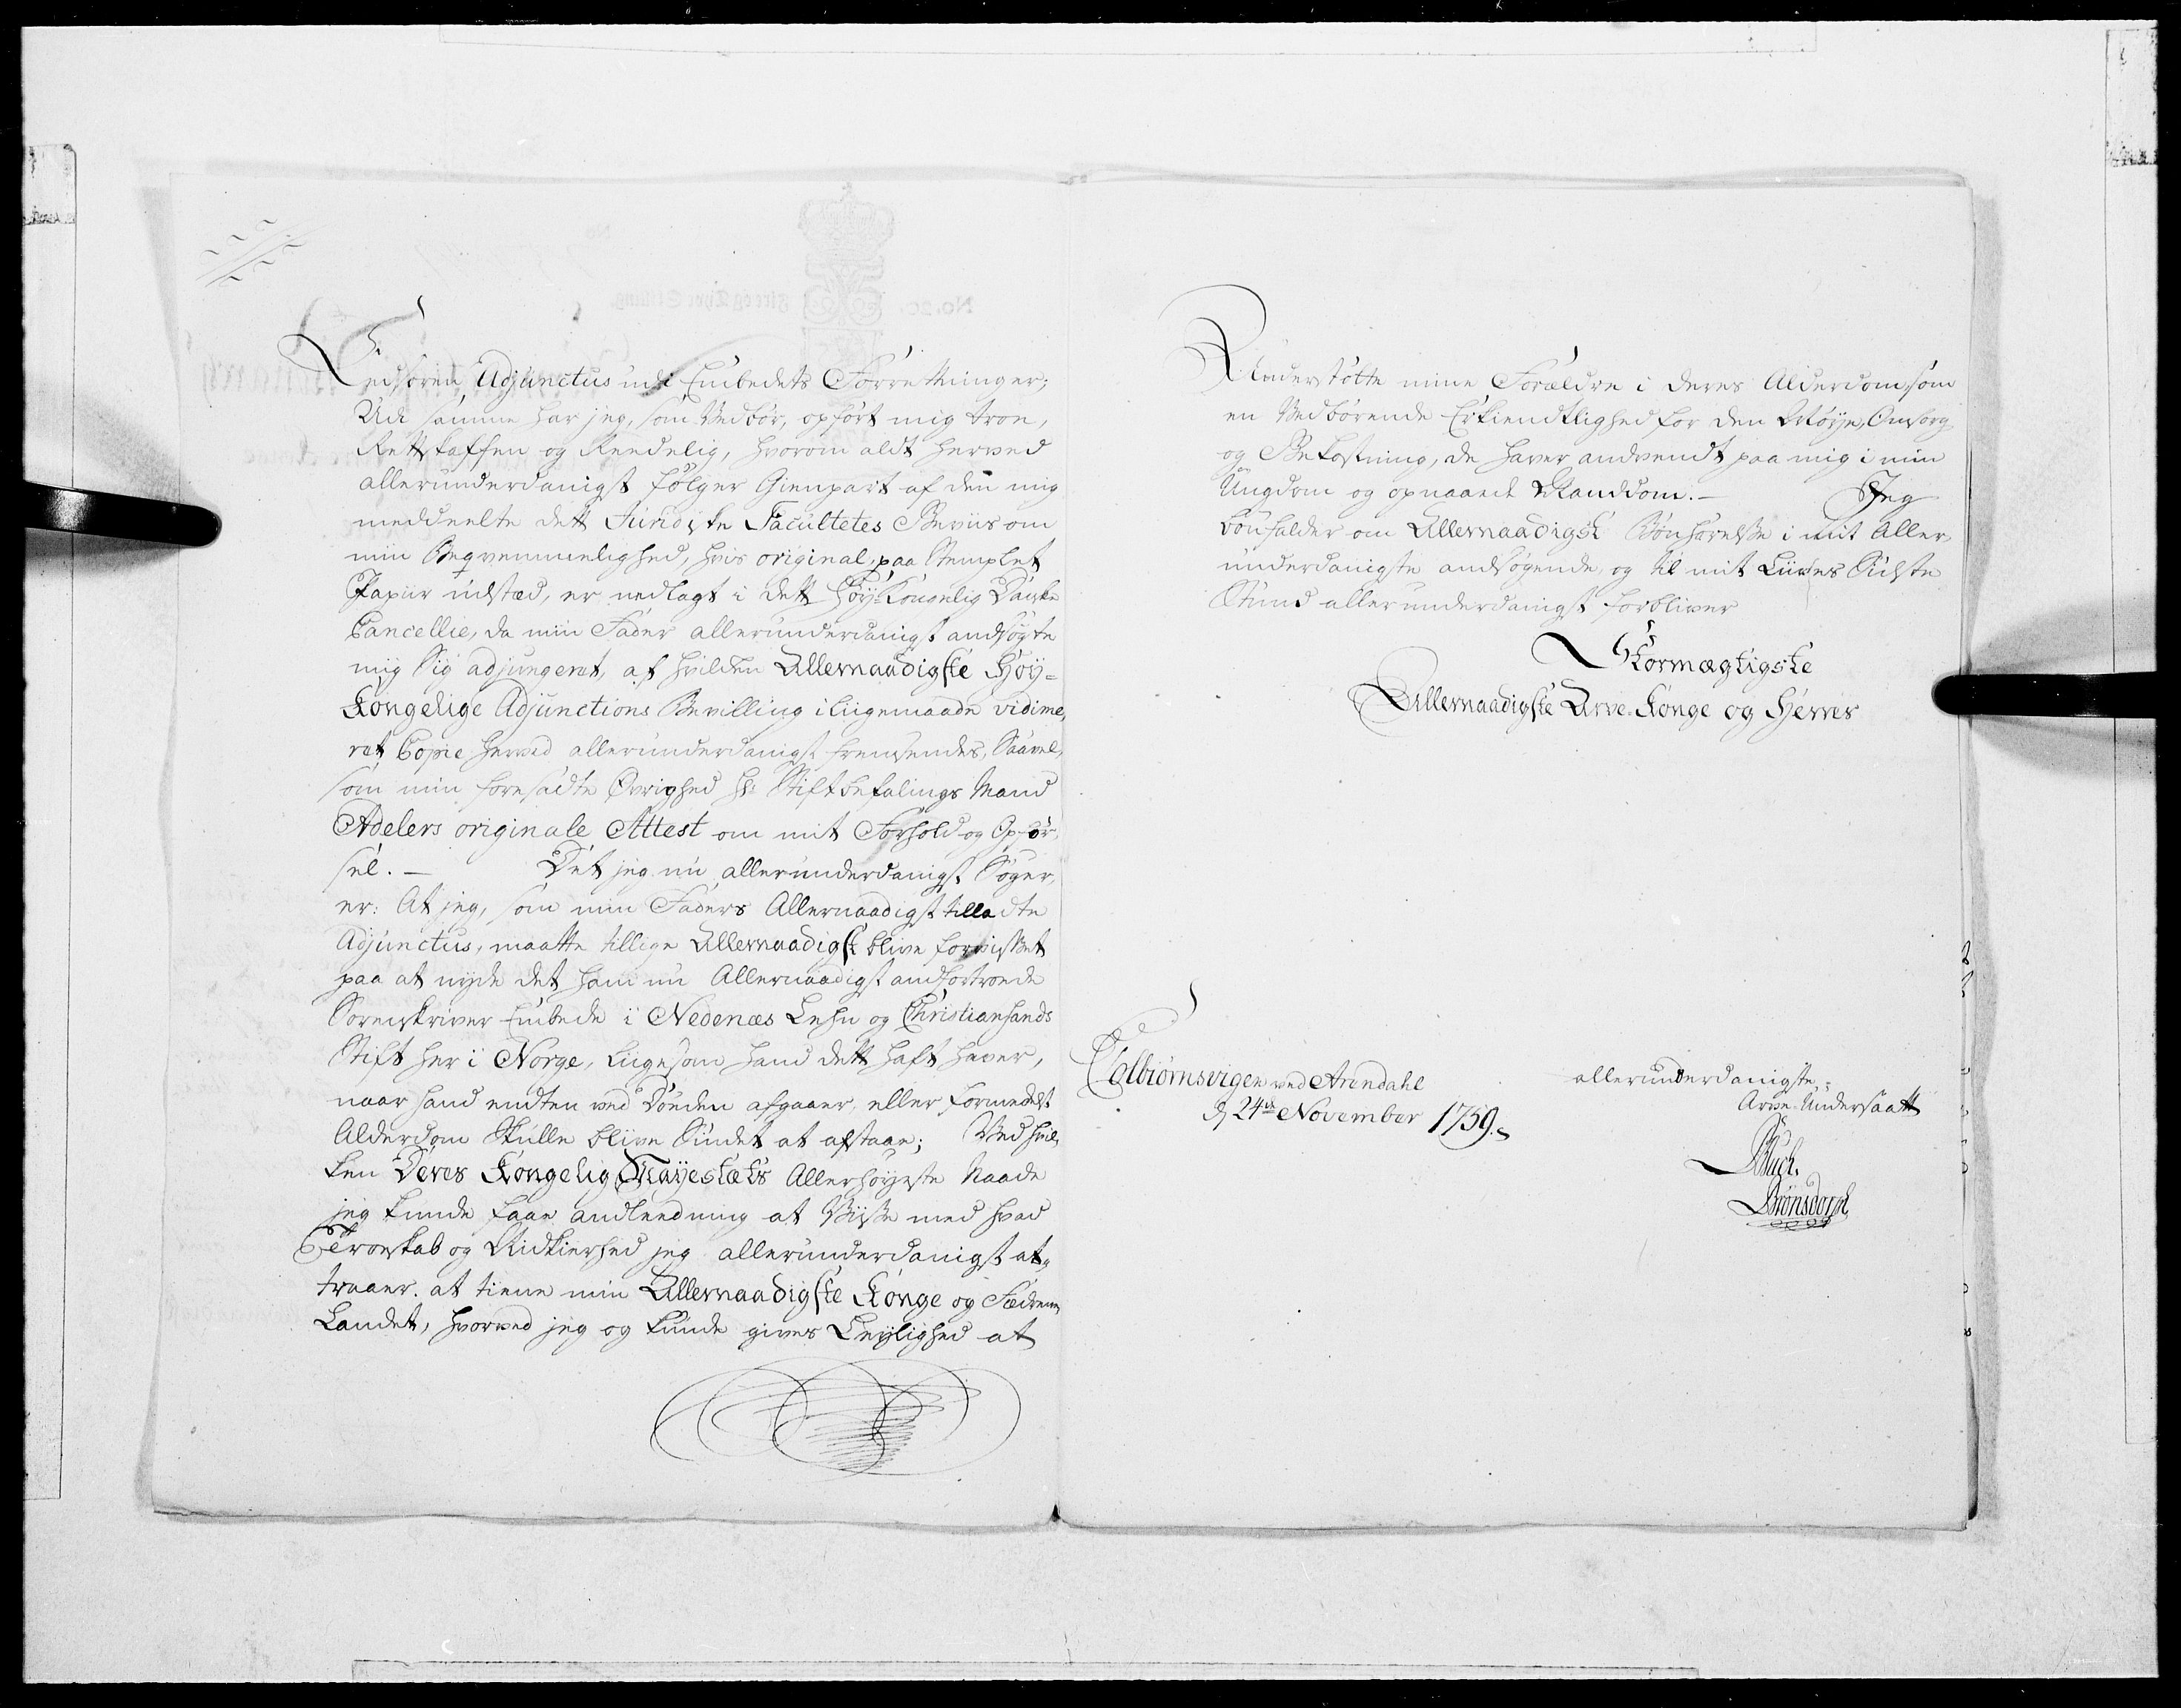 Eedsoren Adjunctus udi Embedets Forretninger;
Udi samme har jeg, som Vedbör, opfört mig troe,
Rettskaffen og Reedelig, hvorom aldt herved
allerunderdanigst fölger Gienpart af den mig
meddeelte dett Juridiske Facultetes Beviis om
min Beqvemmelighed, hvis original, paa Stemplet
Papiir udsted, er nedlagt i dett Höy-Kongelig Danske
Cancellie, da min Fader allerunderdanigst andsögte
mig Sig adjungeret, af hvilken Allernaadigste Höy=
Kongelige Adjunctions Bevilling i liigemaade vidime,
ret Copie herved allerunderdanigst fremsendes, Saavel,
som min foresadte Övrighed Hr Stiftbefalings Mand
Adelers originale Attest om mit Forhold og Opför,
sel. — Det jeg nu allerunderdanigst Söger,
er: At jeg, som min Faders Allernaadigst tilladte
Adjunctus, maatte tillige Allernaadigst blive forvisset
paa at nyde det ham nu Allernaadigst andfortroede
Sorenskriver Embede i Nedenæs Lehn og Christiansands
Stift her i Norge, liigesom hand dett haft haver,
naar hand endten ved Döden afgaaer, eller formedelst
Alderdom Skulle blive Sindet at afstaae; Ved hvil,
ken Deres Kongelig Mayestæts Allerhöyeste Naade
jeg kunde faae andleedning at Viise med hvad
Troeskab og Nidkierhed jeg allerunderdanigst at,
traaer at tiene min Allernaadigste Konge og Fædrene,
Landet, hvorved jeg og kunde gives Leylighed at
Understötte mine Forældre i deres Alderdom, som
en Vedbörende Erkiendtlighed for den Möye, Omsorg
og Bekostning, de haver andvendt paa mig i min
Ungdom og opnaaede Manddom. — Jeg
bönfalder om Allernaadigst Bönhörelse i mit Aller,
underdanigste andsögende, og til mit Liives Sidste
Stund allerunderdanigst forbliver
Stormægtigste
Allernaadigste Arve-Konge og Herres
Colbiörnsvigen ved Arendahl
d 24de November 1759.
allerunderdanigste
Arve-Undersaatt
Buch.
Brönsdorph